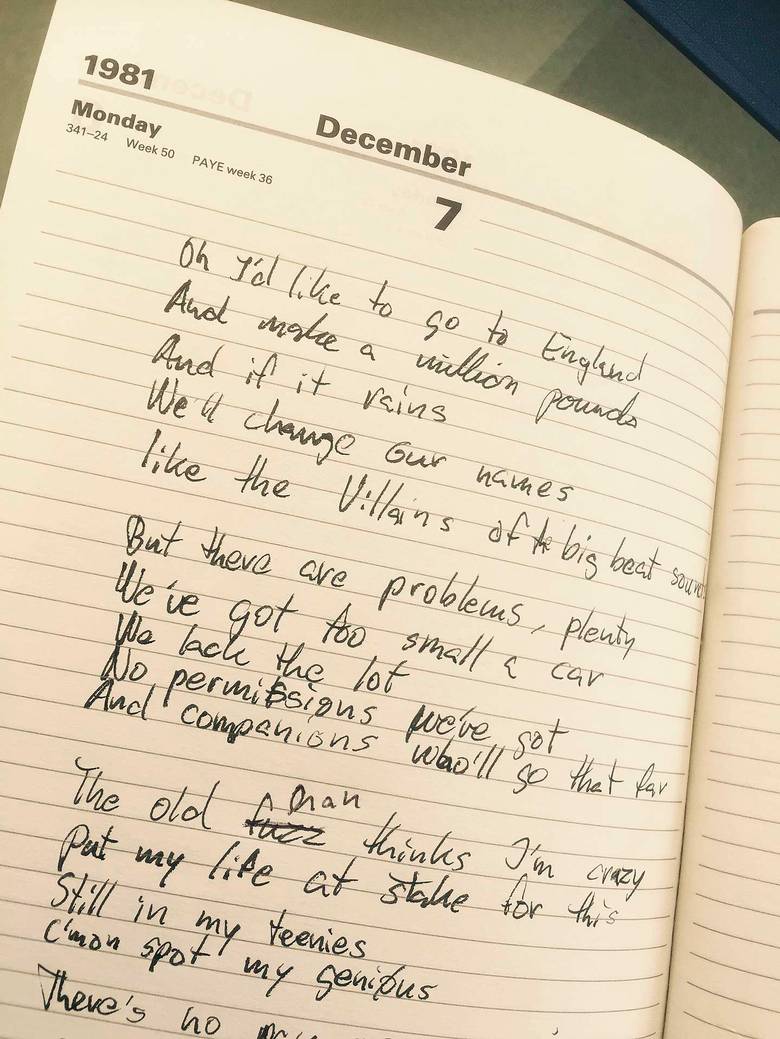 1981
December
Monday
341–24 Week 50 PAYE week 36
7
Oh I'd like to go to England
And make a million pounds
And if it rains
We'll change our names
like the Villains of the big beat sound
But there are problems, plenty
We've got too small a car
We lack the lot
No permissions we've got
And companions who'll go that far
The old man thinks I'm crazy
Put my life at stake for this
Still in my teenies
C'mon spot my genious
There's no